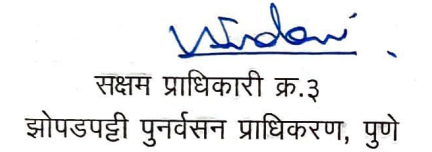 सक्षम प्राधिकारी क्र.३
झोपडपट्टी पुनर्वसन प्राधिकरण, पुणे